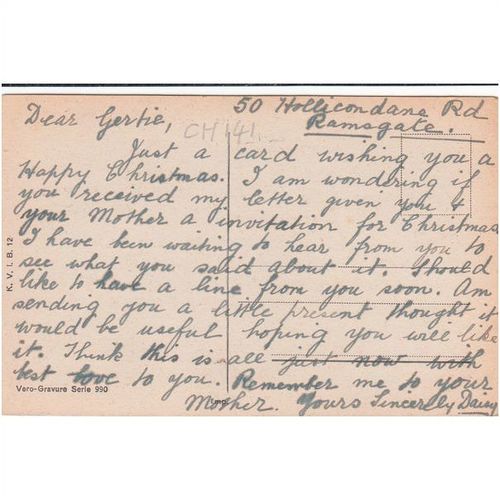 50 Hollicondane Rd
Ramsgate.
Dear Gertie,
CH141
Just a card wishing you a
Happy Christmas. I am wondering if
you received my letter given you &
your Mother a invitation for Christmas
I have been waiting to hear from you to
see what you said about it. Should
like to have a line from you soon. Am
sending you a little present thought it
would be useful hoping you will like
it. Think this is all just now with
best love to you. Remember me to your
Mother. Yours Sincerely Daisy
K. V. I. B. 12
Vero-Gravure Serie 990
Imp.